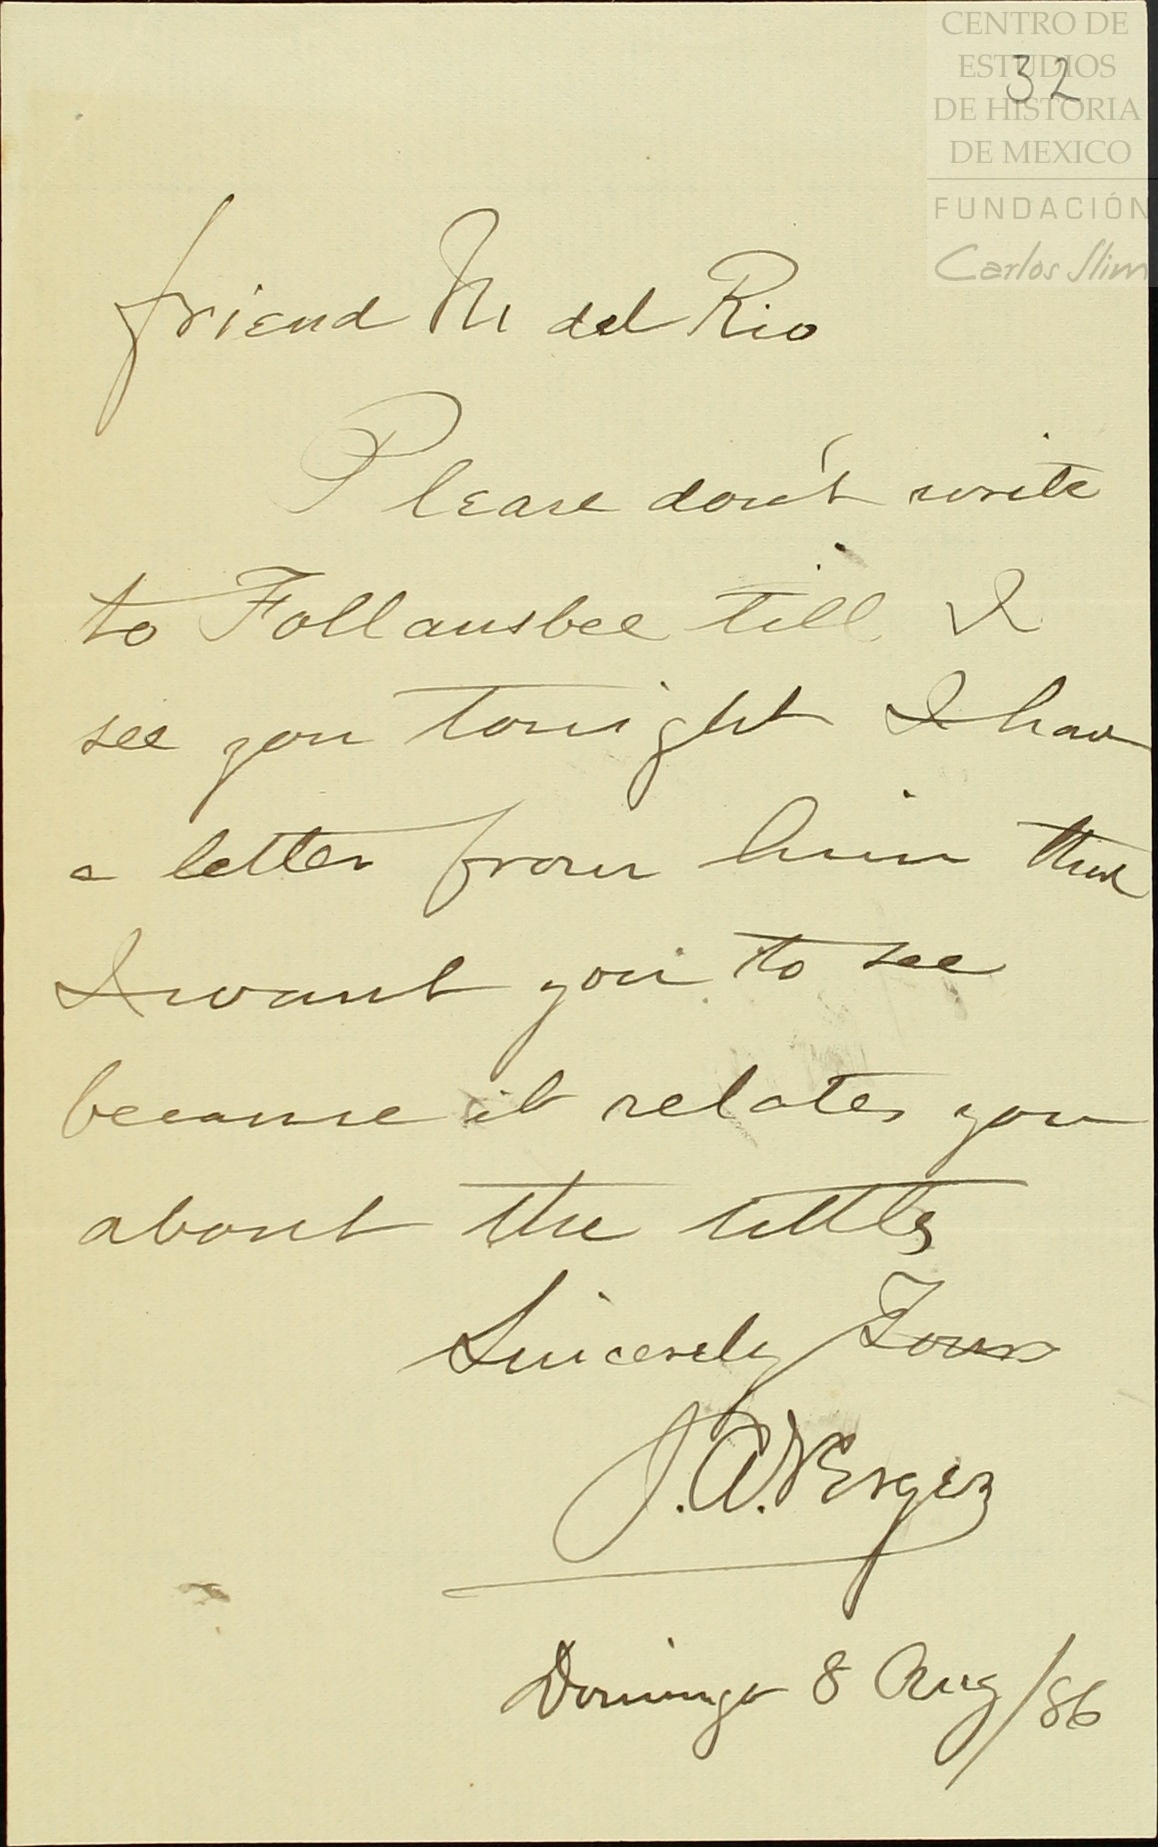 CENTRO DE
ESTUDIOS
DE HISTORIA
DE MEXICO
FUNDACIÓN
Carlos Slim
32
friend M del Rio
Please don't write
to Follansbee till I
see you tonight I have
a letter from him that
I want you to see
because it relates you
about the tittles
Sincerely Yours
J. A. Vergez
Domingo 8 Aug/86